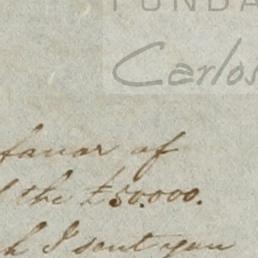 FUNDA
Carlos
favor of
the £50.000.
h I sent you